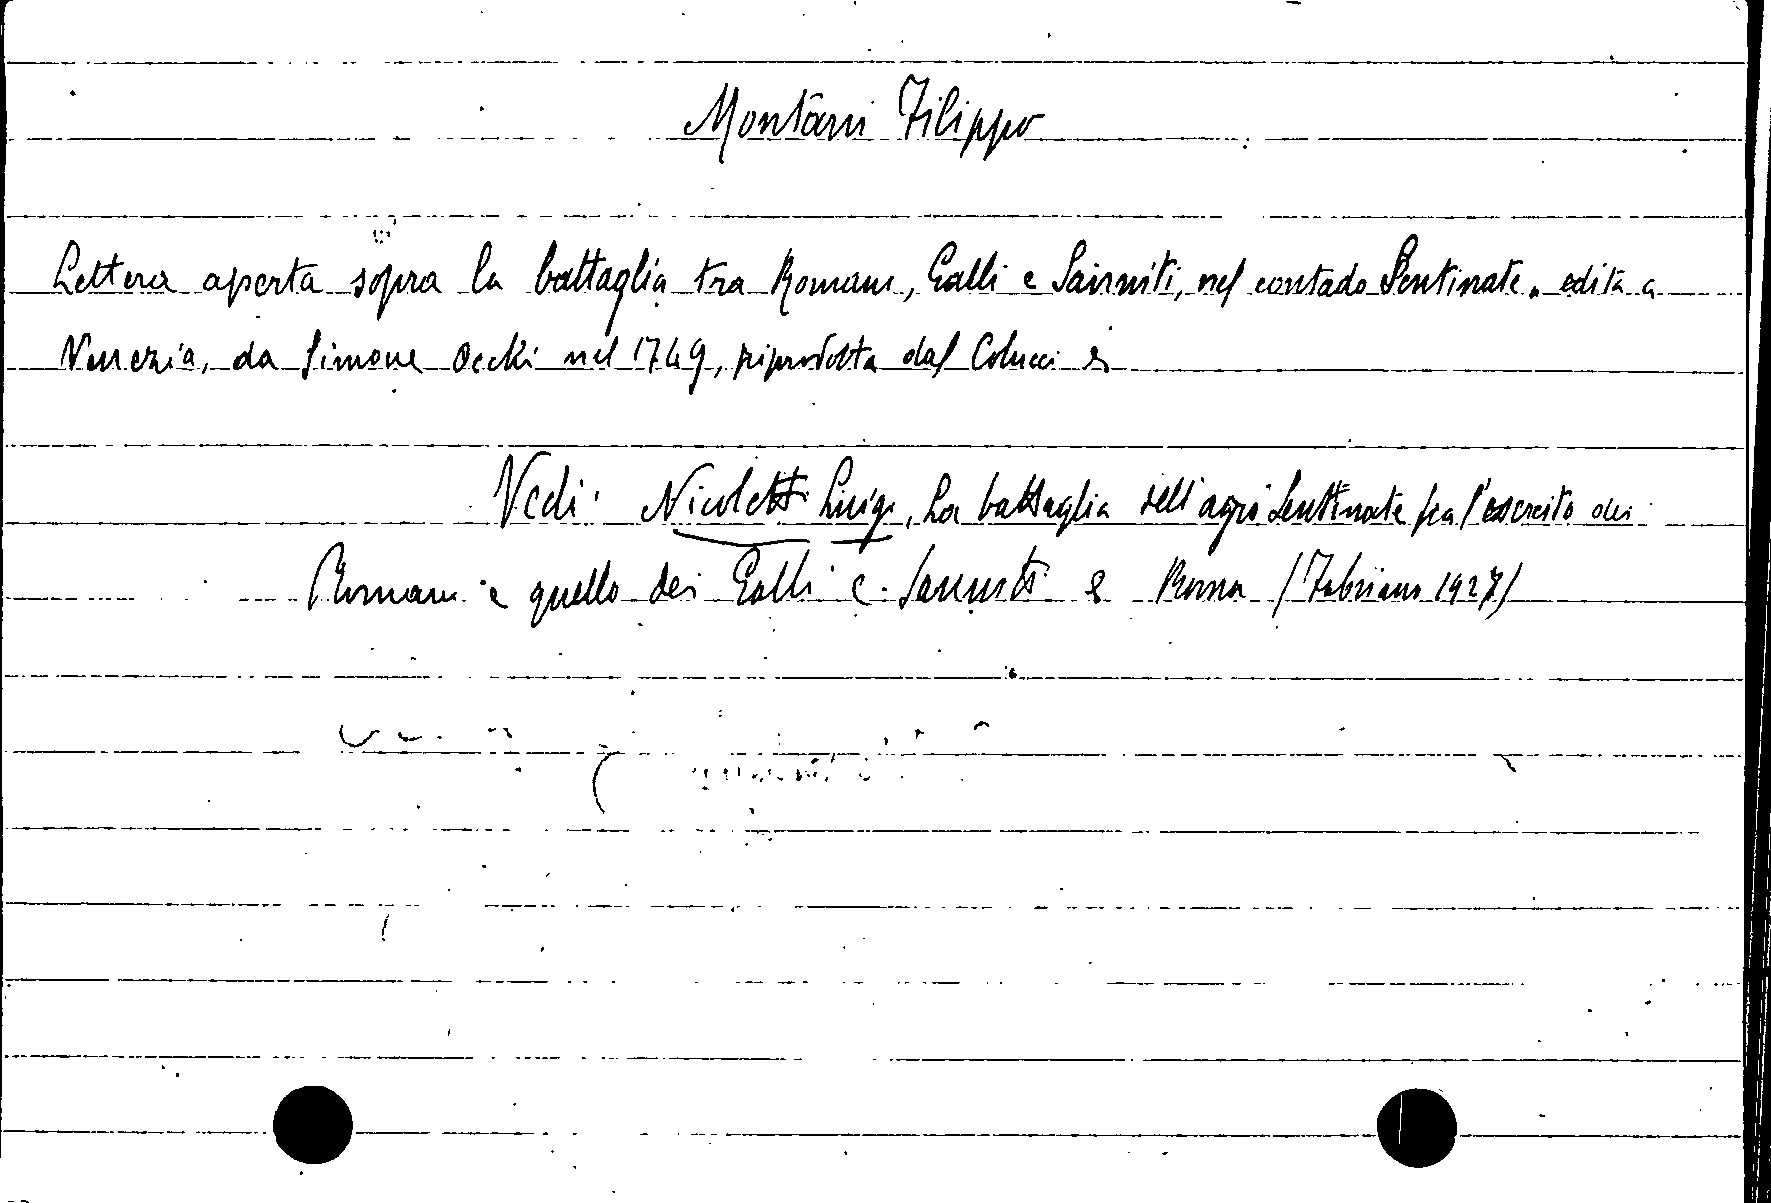 Montani Filippo
Lettera aperta sopra la battaglia tra Romani, Galli e Sanniti, nel contado Sentinate. edita a
Venezia, da Simone Occhi nel 1749, riprodotta dal Colucci
Vedi: Nicoletti Luigi, La battaglia dell'agro Sentinate fra l'esercito dei
Romani e quello dei Galli e Sanniti Roma (Fabriano 1927)